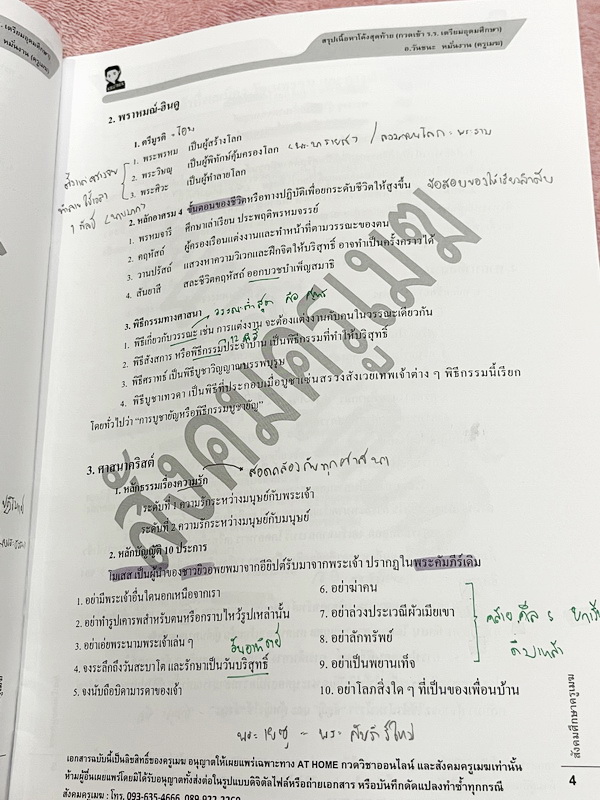 - เตรียมอุดมศึกษา)
หมั่นงาน (ครูเมฆ)
สรุปเนื้อหาโค้งสุดท้าย (กวดเข้า ร.ร. เตรียมอุดมศึกษา)
อ.วันชนะ หมั่นงาน (ครูเมฆ)
2. พราหมณ์-ฮินดู
1. ตรีมูรติ
1. พระพรหม เป็นผู้สร้างโลก
2. พระวิษณุ เป็นผู้พิทักษ์คุ้มครองโลก
3. พระศิวะ เป็นผู้ทำลายโลก
2. หลักอาศรม 4 ขั้นตอนของชีวิตหรือทางปฏิบัติเพื่อยกระดับชีวิตให้สูงขึ้น
1. พรหมจารี ศึกษาเล่าเรียน ประพฤติพรหมจรรย์
2. คฤหัสถ์ ผู้ครองเรือนแต่งงานและทำหน้าที่ตามวรรณะของตน
3. วานปรัสถ์ แสวงหาความวิเวกและฝึกจิตให้บริสุทธิ์ อาจทำเป็นครั้งคราวได้
4. สันยาสี สละชีวิตคฤหัสถ์ ออกบวชบำเพ็ญสมาธิ
3. พิธีกรรมทางศาสนา
1. พิธีเกี่ยวกับวรรณะ เช่น การแต่งงาน จะต้องแต่งงานกับคนในวรรณะเดียวกัน
2. พิธีสังสการ หรือพิธีกรรมประจำบ้าน เป็นพิธีกรรมที่ทำให้บริสุทธิ์
3. พิธีศราทธ์ เป็นพิธีบูชาวิญญาณบรรพบุรุษ
4. พิธีบูชาเทวดา เป็นพิธีที่ประกอบเมื่อบูชาเซ่นสรวงสังเวยเทพเจ้าต่าง ๆ พิธีกรรมนี้เรียก
โดยทั่วไปว่า "การบูชายัญหรือพิธีกรรมบูชายัญ"
สังคมครูเมฆ
3. ศาสนาคริสต์
1. หลักธรรมเรื่องความรัก สอดคล้องกับทุกศาสนา
ระดับที่ 1 ความรักระหว่างมนุษย์กับพระเจ้า
ระดับที่ 2 ความรักระหว่างมนุษย์กับมนุษย์
2. หลักบัญญัติ 10 ประการ
โมเสส เป็นผู้นำของชาวยิวอพยพมาจากอียิปต์รับมาจากพระเจ้า ปรากฏในพระคัมภีร์เดิม
1. อย่ามีพระเจ้าอื่นใดนอกเหนือจากเรา
2. อย่าทำรูปเคารพสำหรับตนหรือกราบไหว้รูปเหล่านั้น
3. อย่าเอ่ยพระนามพระเจ้าเล่น ๆ
วันอาทิตย์
4. จงระลึกถึงวันสะบาโต และรักษาเป็นวันบริสุทธิ์
5. จงนับถือบิดามารดาของเจ้า
6. อย่าฆ่าคน
7. อย่าล่วงประเวณีผัวเมียเขา
8. อย่าลักทรัพย์
9. อย่าเป็นพยานเท็จ
10. อย่าโลภสิ่งใด ๆ ที่เป็นของเพื่อนบ้าน
คล้าย ศีล 5 ยกเว้น
ดื่มเหล้า
พระเยซู - พระคัมภีร์ใหม่
สังคมศึกษาครูเมฆ
4
เอกสารฉบับนี้เป็นลิขสิทธิ์ของครูเมฆ อนุญาตให้เผยแพร่เฉพาะทาง AT HOME กวดวิชาออนไลน์ และสังคมครูเมฆเท่านั้น
ห้ามผู้อื่นเผยแพร่โดยมิได้รับอนุญาตทั้งส่งต่อในรูปแบบดิจิตัลไฟล์หรือถ่ายเอกสาร หรือบันทึกดัดแปลงทำซ้ำทุกกรณี
สังคมครูเมฆ : โทร. 093-635-4666